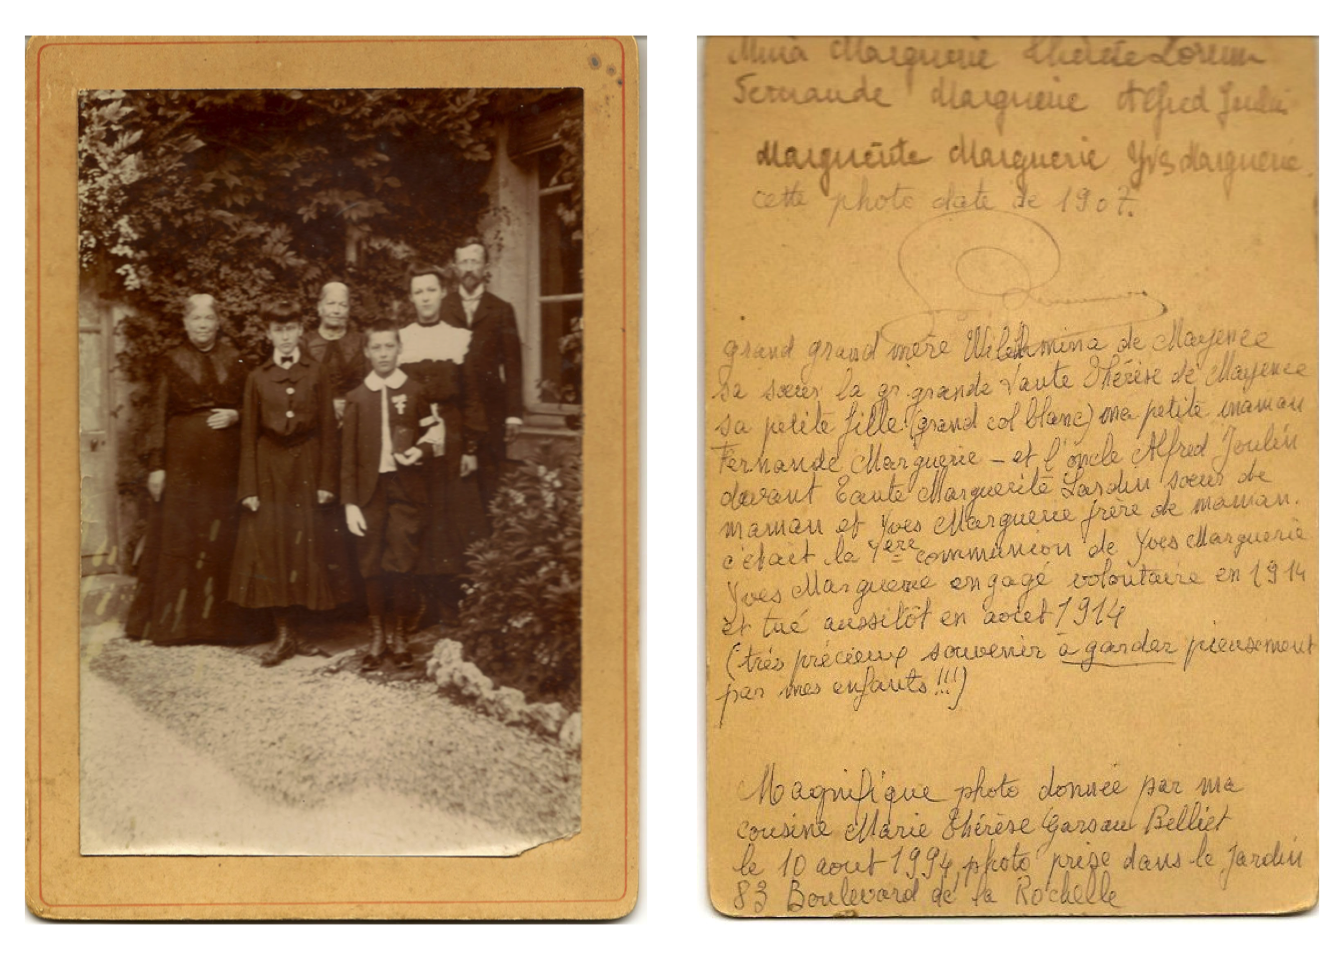 Mina Marguerie Thérèse Lorenn
Fernande Marguerie Alfred Joulin
Marguerite Marguerie Yves Marguerie.
cette photo date de 1907.
grand grand mère Wilelhmina de Mayence
sa sœur la gr grande Tante Thérèse de Mayence
sa petite fille (grand col blanc) ma petite maman
Fernande Marguerie - et l'oncle Alfred Joulin
devant Tante Marguerite Sardin sœur de
maman et Yves Marguerie frère de maman.
c'était la 1ère communion de Yves Marguerie
Yves Marguerie engagé volontaire en 1914
et tué aussitôt en aout 1914
(très précieux souvenir à garder pieusement
par mes enfants !!!)
Magnifique photo donnée par ma
cousine Marie Thérèse Garsau Belliet
le 10 aout 1994, photo prise dans le Jardin
83 Boulevard de la Rochelle